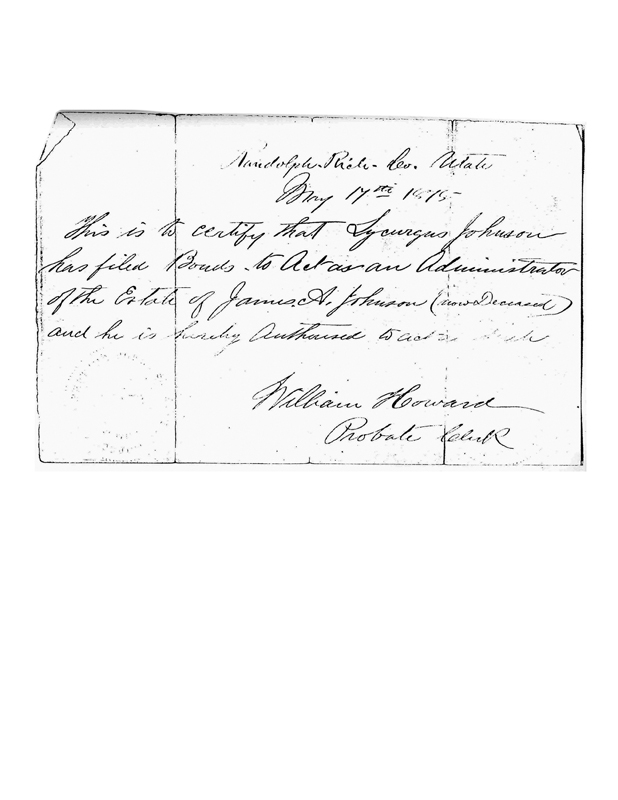 Randolph Rich Co. Utah
May 17th 1875
This is to certify that Lycurgus Johnson
has filed Bonds to Act as an Administrator
of the Estate of James A. Johnson (now Deceased)
and he is hereby Authorised to act as such
William Howard
Probate Clerk